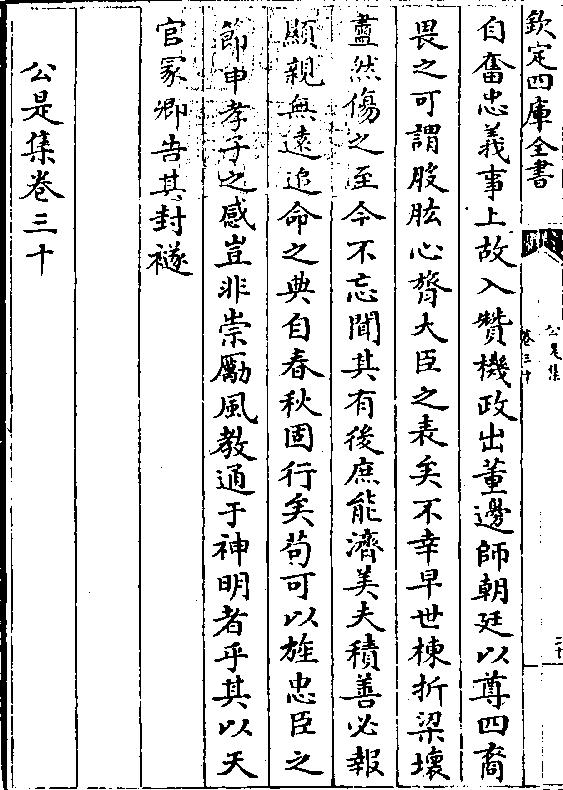 欽定四庫全書
公是集
卷三十
二十
自奮忠義事上故入贊機政出董邊師朝廷以尊四裔
畏之可謂股肱心膂大臣之表矣不幸早世棟折梁壞
衋然傷之至今不忘聞其有後庶能濟美夫積善必報
顯親無遠追命之典自春秋固行矣茍可以旌忠臣之
節申孝子之感豈非崇勵風教通于神明者乎其以天
官冢卿告其封襚
公是集卷三十